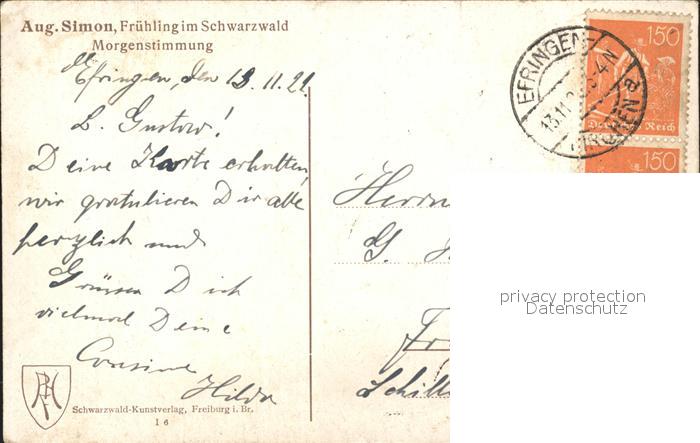 Aug. Simon, Frühling im Schwarzwald
Morgenstimmung
Efringen, den 13. 11. 21.
L. Gustav!
Deine Karte erhalten,
wir gratulieren Dir alle
herzlich und
Grüssen Dich
vielmal Deine
Cousine
Hilda
Schwarzwald-Kunstverlag, Freiburg i. Br.
I 6
EFRINGEN-
KIRCHEN a
13.11.2
3-4 N
150
Deutsches Reich
150
Herrn
G.
Fr
Schill
privacy protection
Datenschutz